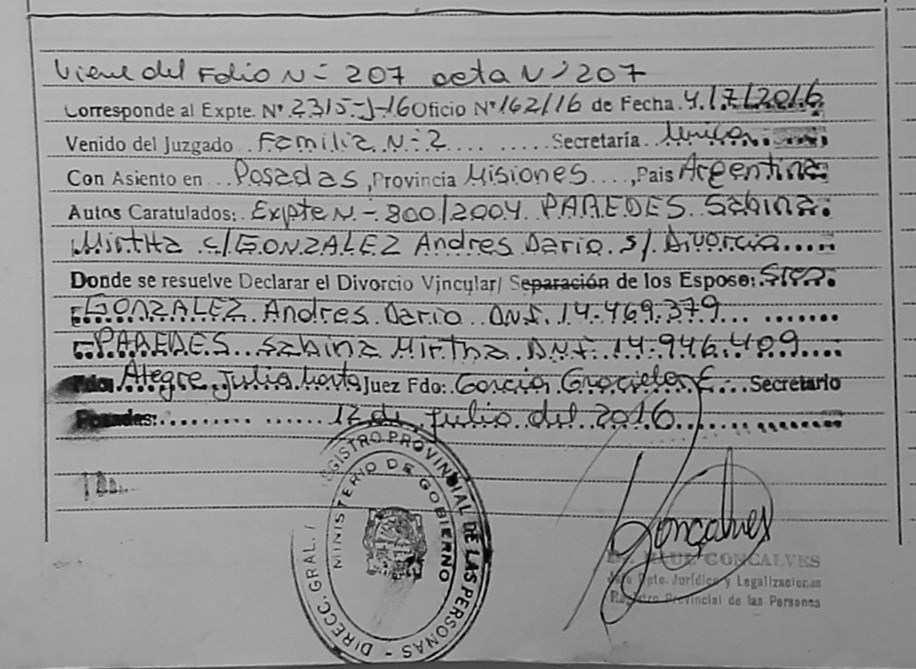 Viene del Folio N- 207 acta N° 207
Corresponde al Expte. N° 2315-J-16 Oficio N° 162/16 de Fecha 4/7/2016
Venido del Juzgado Familia N-2 Secretaría Unica
Con Asiento en Posadas, Provincia Misiones, Pais Argentina
Autos Caratulados: Expte N- 800/2004 PAREDES Sabina
Mirtha c/ GONZALEZ Andres Dario s/ Divorcio
Donde se resuelve Declarar el Divorcio Vincular/ Separación de los Esposo: Sres.
GONZALEZ Andres Dario DNI. 14.469.379
PAREDES Sabina Mirtha DNI. 14.946.409
Fdo: Alegre Julia Marta Juez Fdo: Garcia Graciela E. Secretario
Posadas: 12 de julio del 2016
DIRECC. GRAL. REGISTRO PROVINCIAL DE LAS PERSONAS -
MINISTERIO DE GOBIERNO
Gonçalves
Dr. RAUL GONCALVES
Jefe Dpto. Jurídico y Legalizaciones
Registro Provincial de las Personas